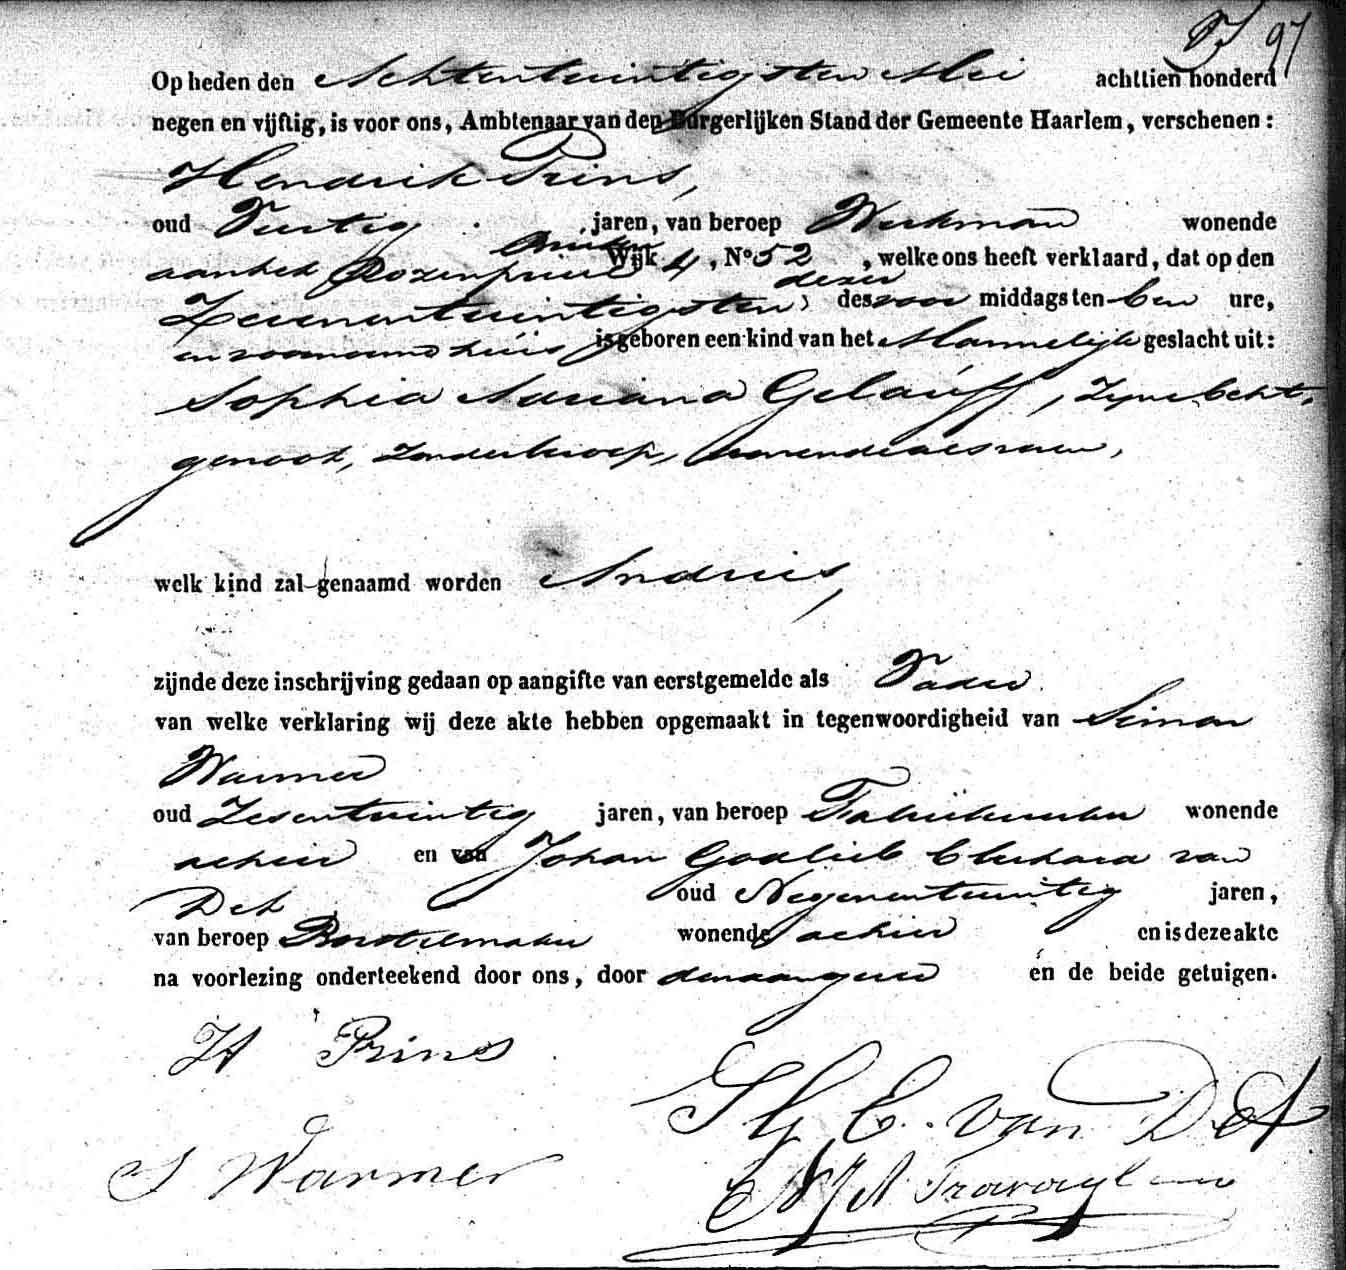 97
Op heden den Achtentwintigsten Mei achttien honderd
negen en vijftig, is voor ons, Ambtenaar van den Burgerlijken Stand der Gemeente Haarlem, verschenen:
Hendrik Prins,
oud Veertig jaren, van beroep Werkman wonende
aan het Rozenprieel Wijk 4, No 52, welke ons heeft verklaard, dat op den
dezer
Zevenentwintigsten, des voor middags ten een ure,
en voornoemd huis is geboren een kind van het Mannelijk geslacht uit:
Sophia Adriana Gelauff, Zijne Echt-
genoot, zonder beroep, wonende alsvoren,
welk kind zal genaamd worden Andries,
zijnde deze inschrijving gedaan op aangifte van eerstgemelde als Vader
van welke verklaring wij deze akte hebben opgemaakt in tegenwoordigheid van Simon
Warmer
oud Zesentwintig jaren, van beroep wonende
alhier en van Johan Godlieb Ekhard van
Det oud Negenentwintig jaren,
van beroep Borstelmaker wonende alhier en is deze akte
na voorlezing onderteekend door ons, door den aangever en de beide getuigen.
H Prins
J G E. van Det
S Warmer
Travaglino